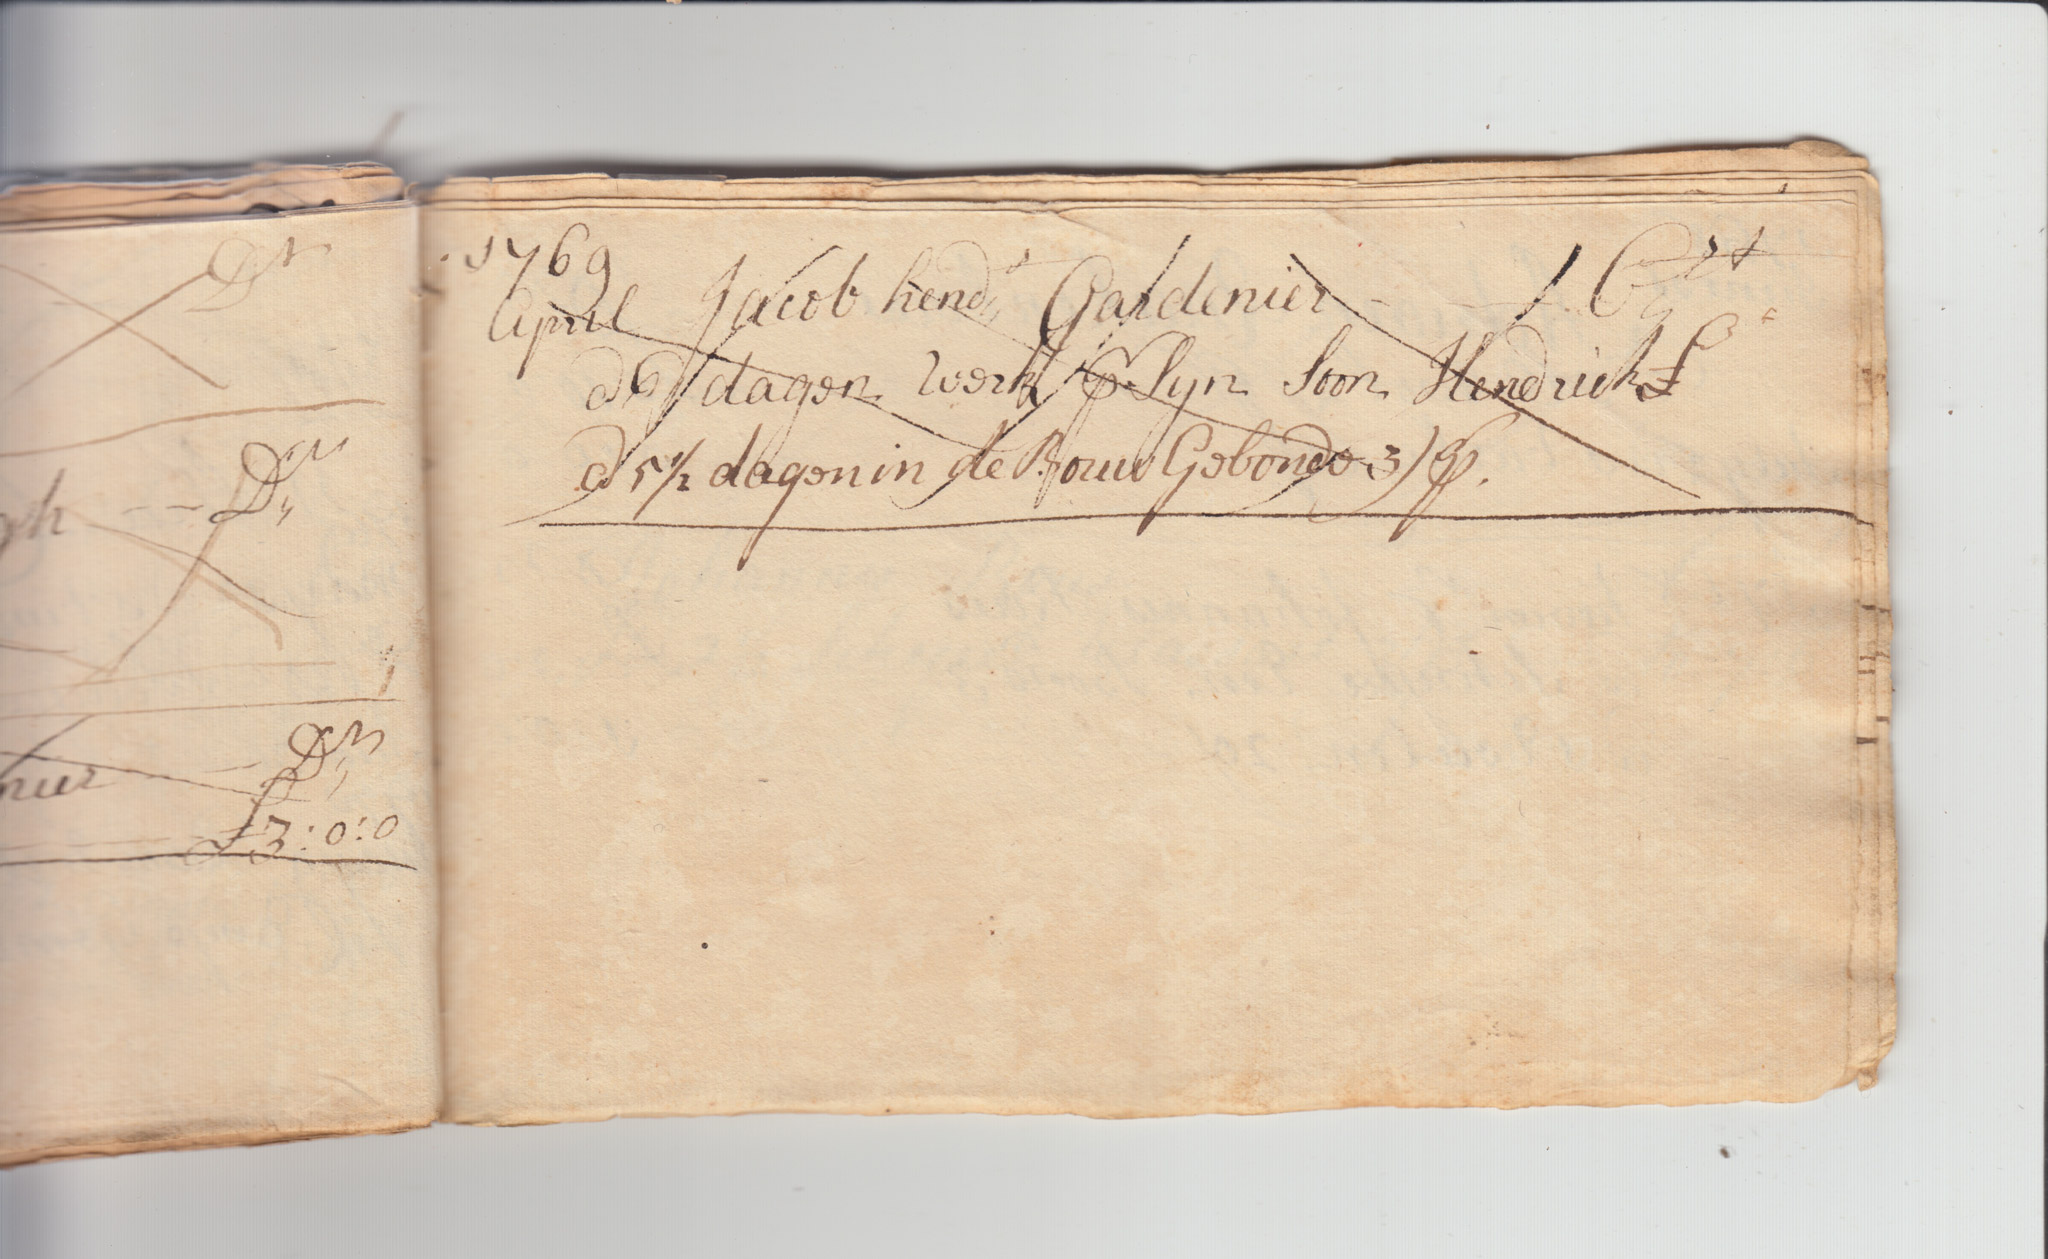 Dr
gh -- Dr
nier Dr
£3:0:0
1769
April Jacob hendr Gardenier - Cr
d 6 dagen werk ⅌ Syn Soon Hendrick £
d 5½ dagen in de Bouw Gebonde 3/ ⅌.